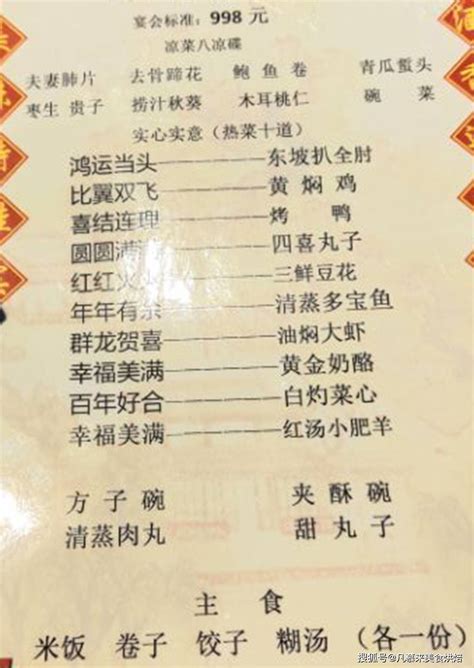 宴会标准：998 元
凉菜八凉碟
夫妻肺片 去骨蹄花 鲍鱼卷 青瓜蜇头
枣生贵子 捞汁秋葵 木耳桃仁 碗菜
实心实意（热菜十道）
鸿运当头——————东坡扒全肘
比翼双飞——————黄焖鸡
喜结连理——————烤鸭
圆圆满——————四喜丸子
红红火——————三鲜豆花
年年有余——————清蒸多宝鱼
群龙贺喜——————油焖大虾
幸福美满——————黄金奶酪
百年好合——————白灼菜心
幸福美满——————红汤小肥羊
方子碗 夹酥碗
清蒸肉丸 甜丸子
主食
米饭 卷子 饺子 糊汤（各一份）
搜狐号@凡嘉来美食烘焙